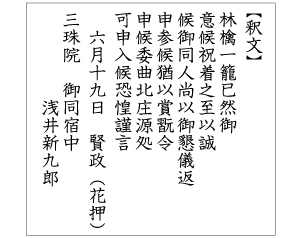 【釈文】
林檎一籠已然御
意候祝着之至以誠
候御同人尚以御懇儀返
申参候猶以賞翫令
申候委曲北庄源処
可申入候恐惶謹言
六月十九日　賢政（花押）
三珠院　御同宿中
浅井新九郎